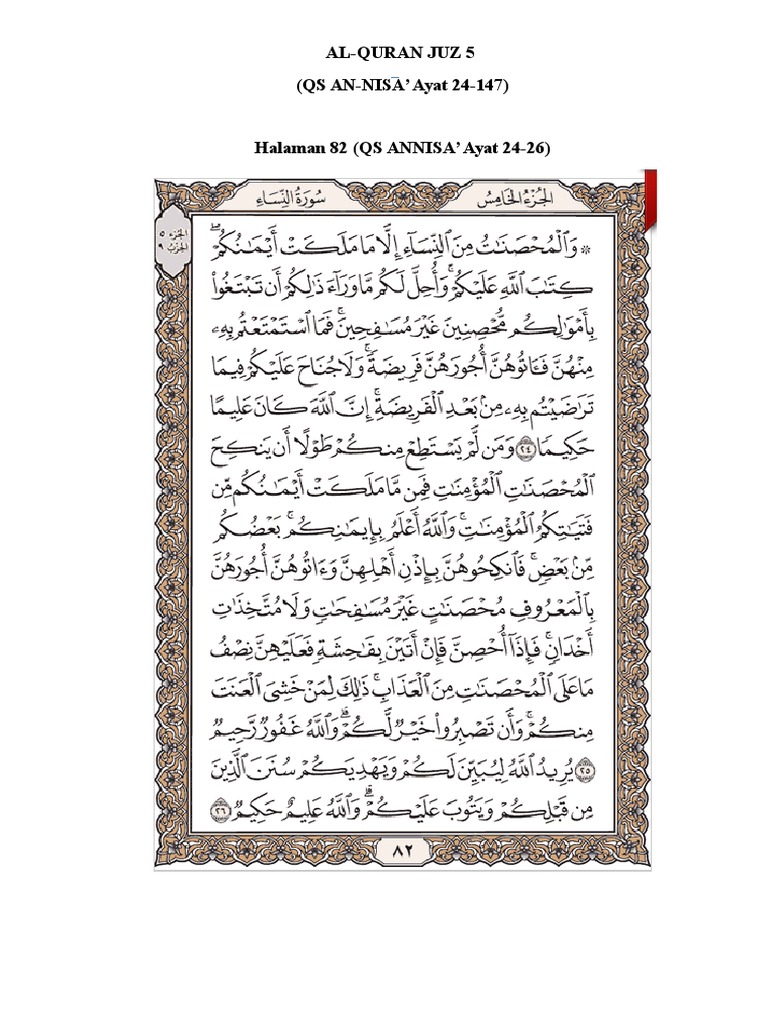 AL-QURAN JUZ 5
(QS AN-NISĀ’ Ayat 24-147)
Halaman 82 (QS ANNISA’ Ayat 24-26)
الجُزْءُ الخَامِسُ
سُورَةُ النِّسَاءِ
الجزء ٥
الحزب ٩
۞ وَٱلْمُحْصَنَٰتُ مِنَ ٱلنِّسَآءِ إِلَّا مَا مَلَكَتْ أَيْمَٰنُكُمْۖ
كِتَٰبَ ٱللَّهِ عَلَيْكُمْۚ وَأُحِلَّ لَكُم مَّا وَرَآءَ ذَٰلِكُمْ أَن تَبْتَغُوا۟
بِأَمْوَٰلِكُم مُّحْصِنِينَ غَيْرَ مُسَٰفِحِينَۚ فَمَا ٱسْتَمْتَعْتُم بِهِۦ
مِنْهُنَّ فَـَٔاتُوهُنَّ أُجُورَهُنَّ فَرِيضَةًۚ وَلَا جُنَاحَ عَلَيْكُمْ فِيمَا
تَرَٰضَيْتُم بِهِۦ مِنۢ بَعْدِ ٱلْفَرِيضَةِۚ إِنَّ ٱللَّهَ كَانَ عَلِيمًا
حَكِيمًا ٢٤ وَمَن لَّمْ يَسْتَطِعْ مِنكُمْ طَوْلًا أَن يَنكِحَ
ٱلْمُحْصَنَٰتِ ٱلْمُؤْمِنَٰتِ فَمِن مَّا مَلَكَتْ أَيْمَٰنُكُم مِّن
فَتَيَٰتِكُمُ ٱلْمُؤْمِنَٰتِۚ وَٱللَّهُ أَعْلَمُ بِإِيمَٰنِكُمۚ بَعْضُكُم
مِّنۢ بَعْضٍۚ فَٱنكِحُوهُنَّ بِإِذْنِ أَهْلِهِنَّ وَءَاتُوهُنَّ أُجُورَهُنَّ
بِٱلْمَعْرُوفِ مُحْصَنَٰتٍ غَيْرَ مُسَٰفِحَٰتٍ وَلَا مُتَّخِذَٰتِ
أَخْدَانٍۚ فَإِذَآ أُحْصِنَّ فَإِنْ أَتَيْنَ بِفَٰحِشَةٍ فَعَلَيْهِنَّ نِصْفُ
مَا عَلَى ٱلْمُحْصَنَٰتِ مِنَ ٱلْعَذَابِۚ ذَٰلِكَ لِمَنْ خَشِىَ ٱلْعَنَتَ
مِنكُمْۚ وَأَن تَصْبِرُوا۟ خَيْرٌ لَّكُمْۗ وَٱللَّهُ غَفُورٌ رَّحِيمٌ
٢٥ يُرِيدُ ٱللَّهُ لِيُبَيِّنَ لَكُمْ وَيَهْدِيَكُمْ سُنَنَ ٱلَّذِينَ
مِن قَبْلِكُمْ وَيَتُوبَ عَلَيْكُمْۗ وَٱللَّهُ عَلِيمٌ حَكِيمٌ ٢٦
٨٢